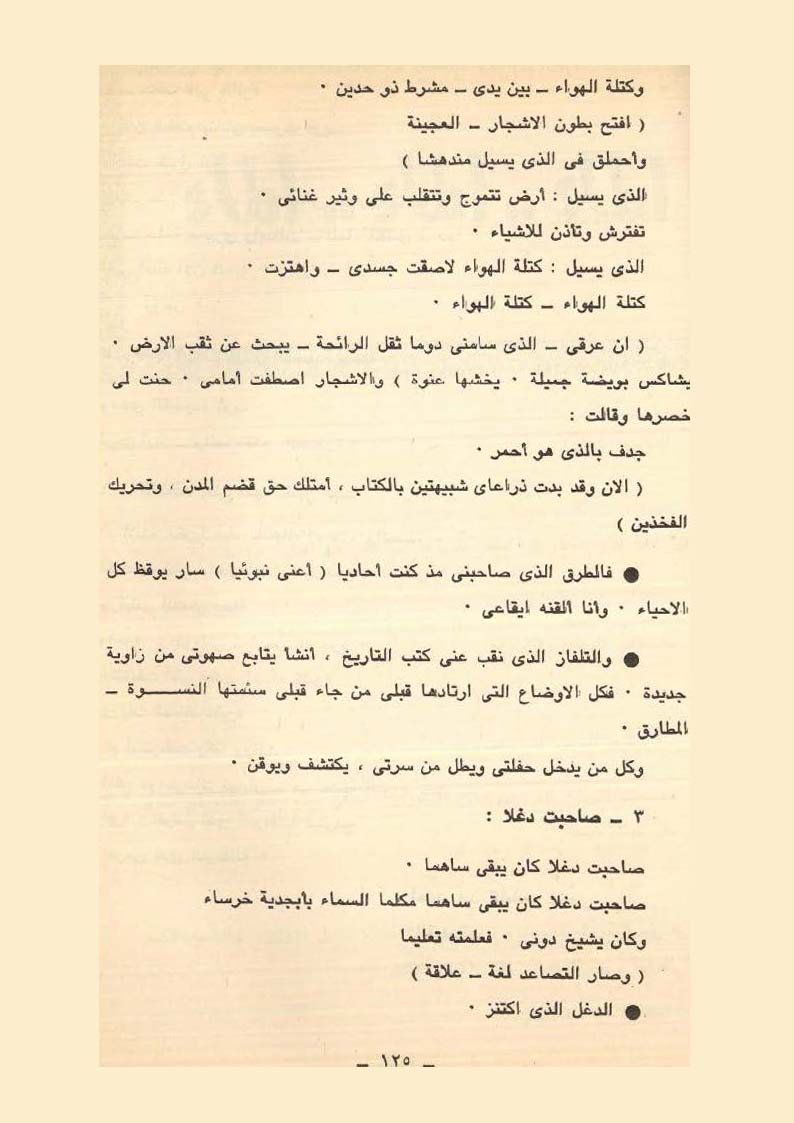 وكتلة الهواء ــ بين يدى ــ مشرط ذو حدين ٠
( افتح بطون الاشجار ــ العجينة
وأحملق فى الذى يسيل مندهشا )
الذى يسيل : أرض تتموج وتتقلب على وثير غنائى ٠
تفترش وتأذن للاشياء ٠
الذى يسيل : كتلة الهواء لاصقت جسدى ــ واهتزت ٠
كتلة الهواء ــ كتلة الهواء ٠
( ان عرقى ــ الذى سامنى دوما ثقل الرائحة ــ يبحث عن ثقب الارض ٠
يشاكس بويضة جميلة ٠ يخشها عنوة ) والاشجار اصطفت أمامى ٠ حنت لى
خصرها وقالت :
جدف بالذى هو أحمر ٠
( الان وقد بدت ذراعاى شبيهتين بالكتاب ، أمتلك حق قضم المدن ، وتحريك
الفخذين )
● فالطرق الذى صاحبنى مذ كنت أحاديا ( أعنى نبوئيا ) سار يوقظ كل
الاحياء ٠ وأنا ألقنه ايقاعى ٠
● والتلفاز الذى نقب عنى كتب التاريخ ، أنشأ يتابع صهوتى من زاوية
جديدة ٠ فكل الاوضاع التى ارتادها قبلى من جاء قبلى سئمتها النسوة ــ
المطارق ٠
وكل من يدخل حفلتى ويطل من سرتى ، يكتشف ويوقن ٠
٣ ــ صاحبت دغلا :
صاحبت دغلا كان يبقى ساهما ٠
صاحبت دغلا كان يبقى ساهما مكلما السماء بأبجدية خرساء
وكان يشيخ دونى ٠ فعلمته تعليما
( وصار التصاعد لغة ــ علاقة )
● الدغل الذى اكتنز ٠
ــ ١٢٥ ــ